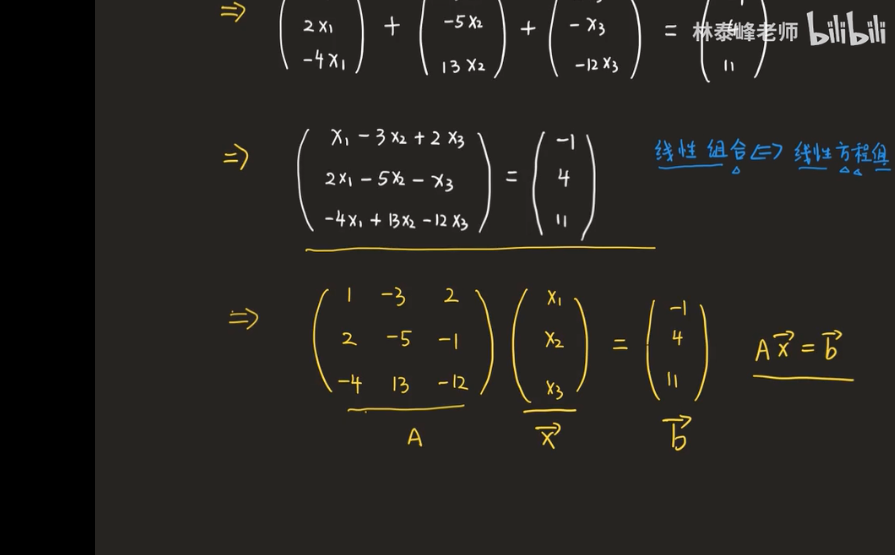 ⇒ ( 2x₁ -4x₁ ) + ( -5x₂ 13x₂ ) + ( -x₃ -12x₃ ) = ( 11 )
林泰峰老师 bilibili
⇒ ( x₁ - 3x₂ + 2x₃ ) = ( -1 )
2x₁ - 5x₂ - x₃ 4
-4x₁ + 13x₂ - 12x₃ 11
线性组合 ⇔ 线性方程组
⇒ ( 1 -3 2 ) ( x₁ ) = ( -1 )
2 -5 -1 x₂ 4
-4 13 -12 x₃ 11
Ax⃗ = b⃗
A x⃗ b⃗